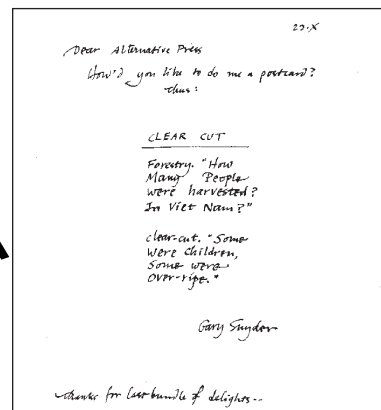 23·X
Dear Alternative Press
How'd you like to do me a postcard?
thus:
CLEAR CUT
Forestry. "How
Many People
were harvested?
In Viet Nam?"
clear-cut. "Some
Were Children,
Some were
Over-ripe."
Gary Snyder
thanks for last bundle of delights--